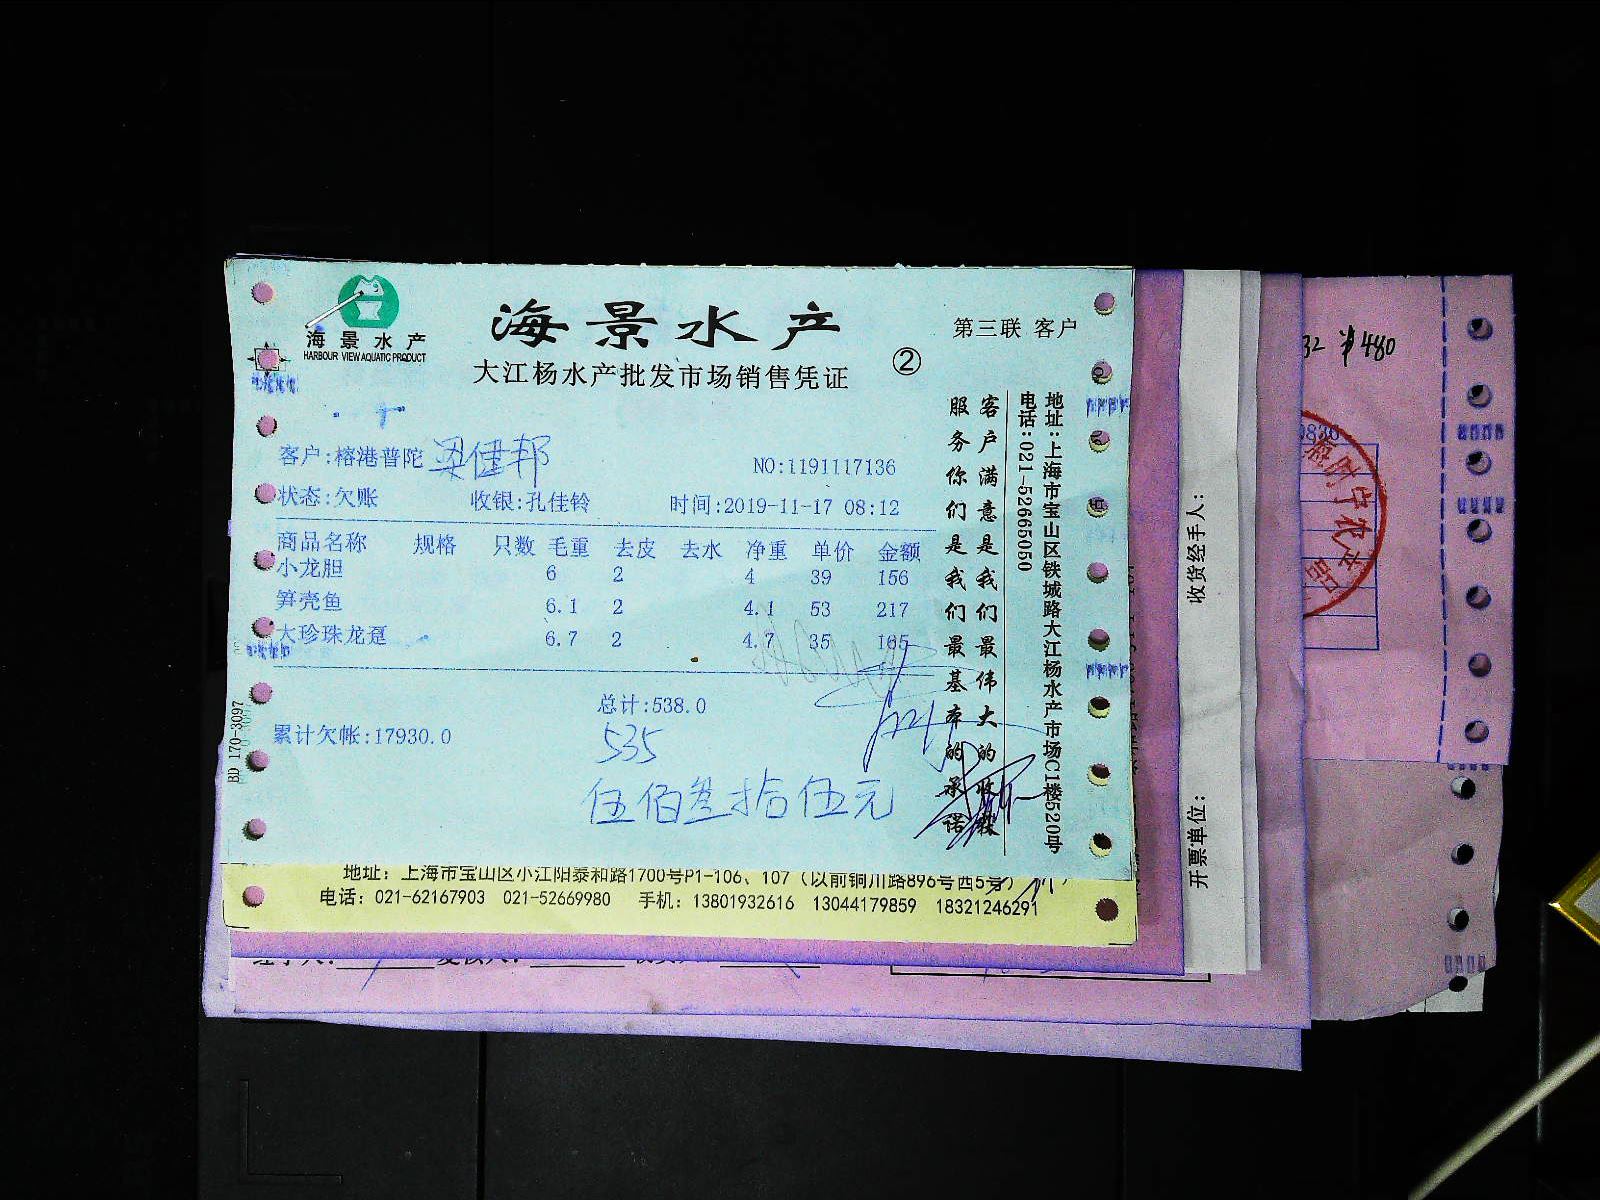 海景水产
HARBOUR VIEW AQUATIC PRODUCT
海景水产
大江杨水产批发市场销售凭证
②
第三联 客户
客户:榕港普陀 梁健邦
NO:1191117136
状态:欠账 收银:孔佳铃 时间:2019-11-17 08:12
商品名称 规格 只数 毛重 去皮 去水 净重 单价 金额
小龙胆 6 2 4 39 156
笋壳鱼 6.1 2 4.1 53 217
大珍珠龙趸 6.7 2 4.7 35 165
总计:538.0
累计欠帐:17930.0
535
伍佰叁拾伍元
客户满意是我们最伟大的收穫
服务你们是我们最基本的承诺
地址:上海市宝山区铁城路大江杨水产市场C1楼520号
电话:021-52665050
BD 170-3097
地址：上海市宝山区小江阳泰和路1700号P1-106、107（以前铜川路896号西5号）
电话：021-62167903 021-52669980 手机：13801932616 13044179859 18321246291
收货经手人：
开票单位：
32 ¥480